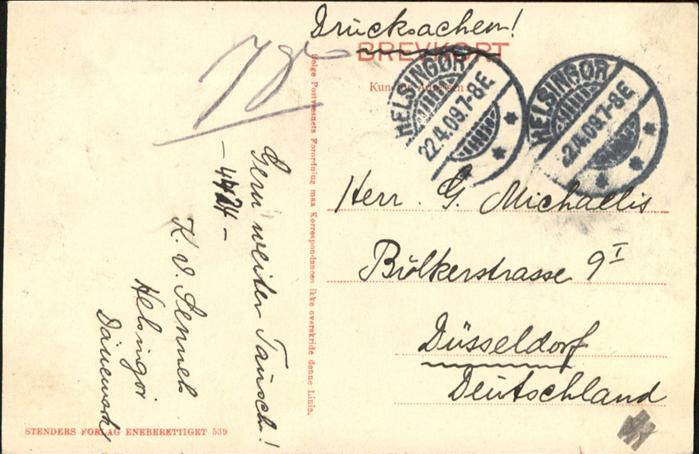 Drucksachen!
BREVKORT
Kun
HELSINGØR
22.4.09.7-8E
HELSINGØR
2.4.09.7-8E
Herr. G. Michaelis
Bölkerstrasse 9 I
Düsseldorf
Deutschland
Ifølge Postvæsnets Forordning maa Korrespondancen ikke overskride denne Linie.
Gern weiter Tausch!
K. V.
Helsingör
Dänemark
STENDERS FORLAG ENEBERETTIGET 539